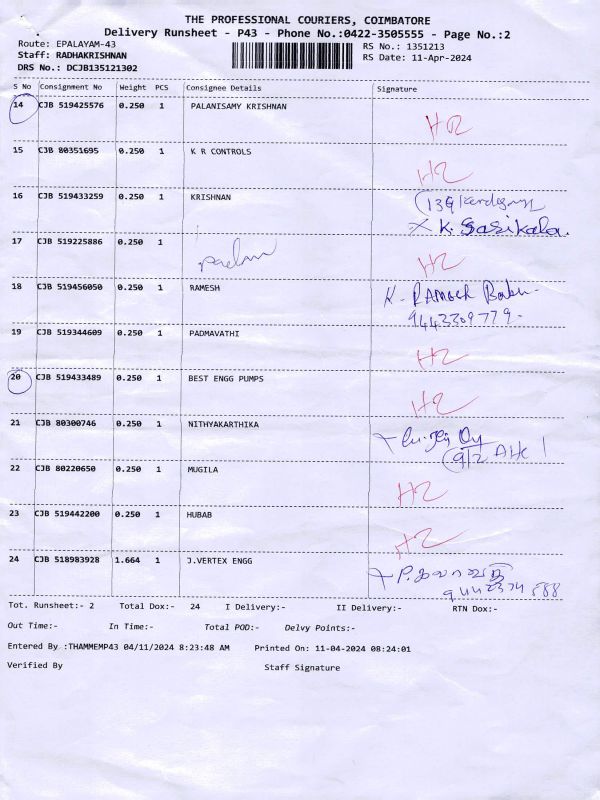 THE PROFESSIONAL COURIERS, COIMBATORE
Delivery Runsheet - P43 - Phone No.:0422-3505555 - Page No.:2
Route: EPALAYAM-43 RS No.: 1351213
Staff: RADHAKRISHNAN RS Date: 11-Apr-2024
DRS No.: DCJB135121302
S No Consignment No Weight PCS Consignee Details Signature
14 CJB 519425576 0.250 1 PALANISAMY KRISHNAN
H2
15 CJB 80351695 0.250 1 K R CONTROLS
H2
16 CJB 519433259 0.250 1 KRISHNAN 139
X K. Sasikala.
17 CJB 519225886 0.250 1
H2
18 CJB 519456050 0.250 1 RAMESH K. RAMESH Babu
9443309779
19 CJB 519344609 0.250 1 PADMAVATHI
H2
20 CJB 519433489 0.250 1 BEST ENGG PUMPS
H2
21 CJB 80300746 0.250 1 NITHYAKARTHIKA
9/2
22 CJB 80220650 0.250 1 MUGILA
H2
23 CJB 519442200 0.250 1 HUBAB
H2
24 CJB 518983928 1.664 1 J.VERTEX ENGG
Tot. Runsheet:- 2 Total Dox:- 24 I Delivery:- II Delivery:- RTN Dox:-
Out Time:- In Time:- Total POD:- Delvy Points:-
Entered By :THAMMEMP43 04/11/2024 8:23:48 AM Printed On: 11-04-2024 08:24:01
Verified By Staff Signature